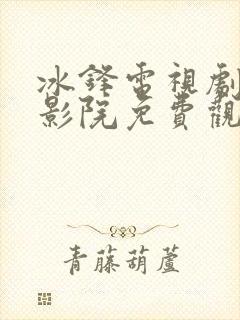 冰鋒電視劇
影院免費觀
青藤葫蘆